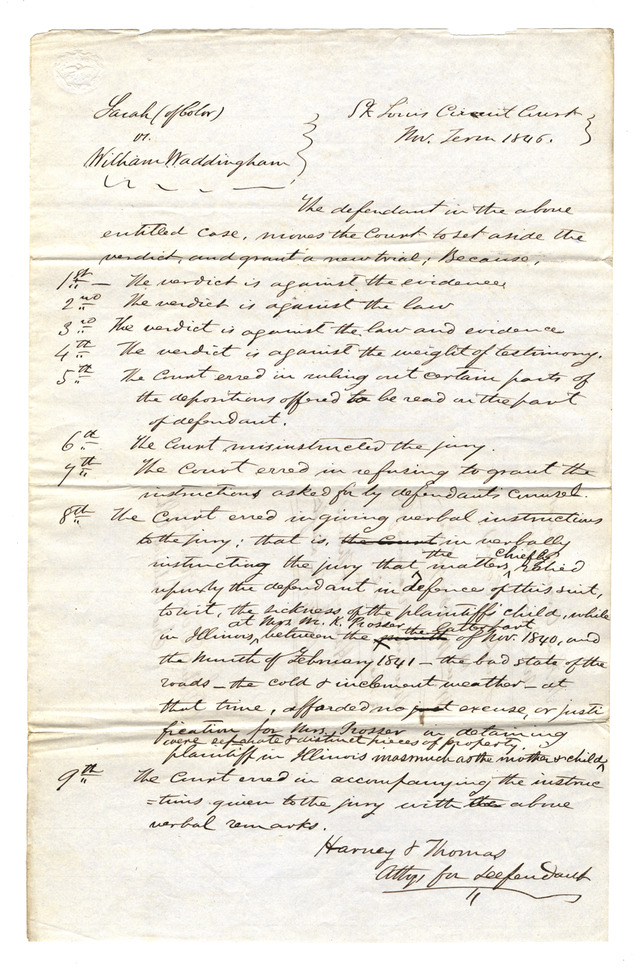 Sarah (of Color)
vs.
William Waddingham
St Louis Circuit Court
Nov. Term 1846.
The defendant in the above
entitled case, moves the Court to set aside the
verdict, and grant a new trial; Because,
1st — The verdict is against the evidence
2nd The verdict is against the law
3rd The verdict is against the law and evidence
4th The verdict is against the weight of testimony.
5th The Court erred in ruling out certain parts of
the depositions offered to be read on the part
of defendant.
6th The Court misinstructed the jury.
7th The Court erred in refusing to grant the
instructions asked for by defendants Counsel.
8th The Court erred in giving verbal instructions
to the jury; that is, the Court in verbally
instructing the jury that the matters, chiefly relied
upon by the defendant in defence of this suit,
to wit, the sickness of the plaintiffs child, while
in Illinois, at Mrs. M. K. Prosser between the month the latter part of Nov. 1840, and
the Month of February 1841 — the bad state of the
roads — the cold & inclement weather — at
that time, afforded no excuse, or justi
fication for Mrs. Prosser in detaining
plaintiff in Illinois inasmuch as the mother & child
were separate & distinct pieces of property
9th The Court erred in accompanying the instruc
=tions given to the jury with the above
verbal remarks.
Harney & Thomas
Attys for Deefendant